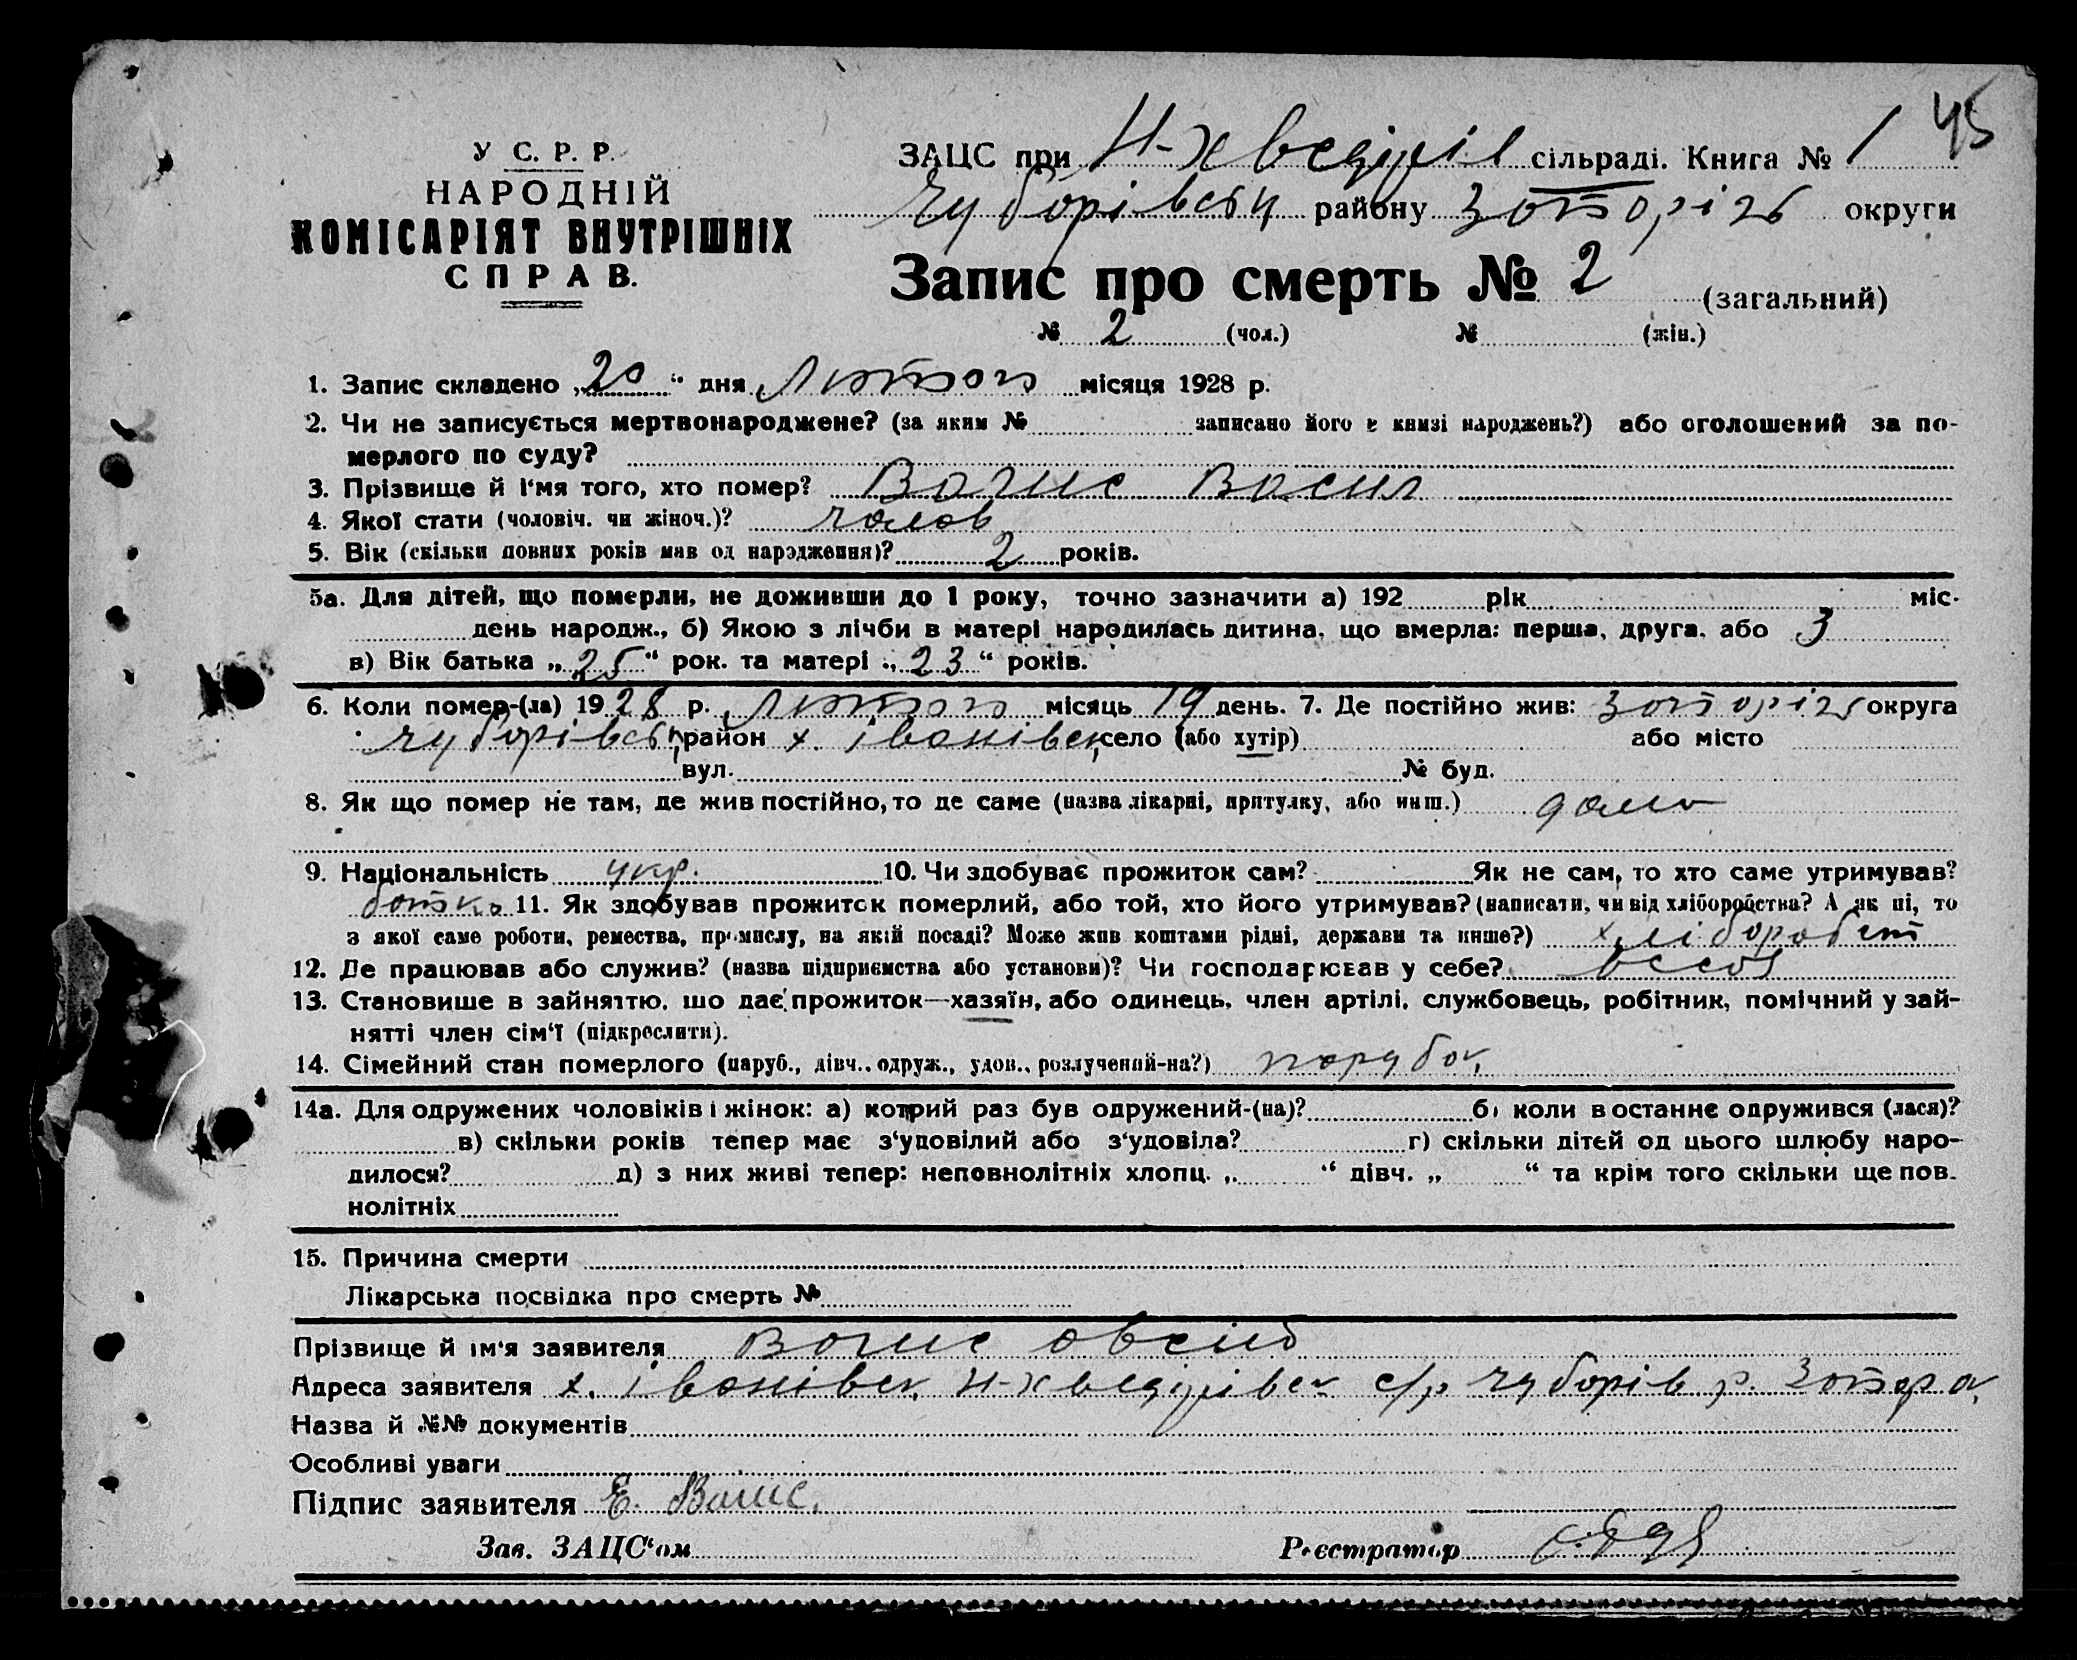 45
У С. Р. Р.
НАРОДНІЙ
КОМІСАРІЯТ ВНУТРІШНІХ
СПРАВ.
ЗАЦС при Н-Хведірів сільраді. Книга № 1
Чубарівськ району Запоріж округи
Запис про смерть № 2 (загальний)
№ 2 (чол.) № (жін.)
1. Запис складено „20“ дня Лютого місяця 1928 р.
2. Чи не записується мертвонароджене? (за яким № записано його в книзі народжень?) або оголошений за по-
мерлого по суду?
3. Прізвище й і'мя того, хто помер? Вагис Васил
4. Якої стати (чоловіч. чи жіноч.)? чолов
5. Вік (скільки повних років мав од народження)? 2 років.
5а. Для дітей, що померли, не доживши до 1 року, точно зазначити а) 192 рік міс.
день народж., б) Якою з лічби в матері народилась дитина, що вмерла: перша, друга, або 3
в) Вік батька „25“ рок. та матері „23“ років.
6. Коли помер-(ла) 1928 р. Лютого місяць 19 день. 7. Де постійно жив: Запоріж округа
Чубарівськ район х. Іванівск село (або хутір) або місто
вул. № буд.
8. Як що помер не там, де жив постійно, то де саме (назва лікарні, притулку, або инш.) дома
9. Національність укр. 10. Чи здобуває прожиток сам? Як не сам, то хто саме утримував?
батько 11. Як здобував прожиток померлий, або той, хто його утримував? (написати, чи від хліборобства? А як ні, то
з якої саме роботи, ремества, промислу, на якій посаді? Може жив коштами рідні, держави та инше?) хлібороб
12. Де працював або служив? (назва підприємства або установи)? Чи господарював у себе?
13. Становише в зайняттю, шо дає прожиток—хазяїн, або одинець, член артілі, службовець, робітник, помічний у зай-
нятті член сім'ї (підкреслити).
14. Сімейний стан померлого (паруб., дівч., одруж., удов., розлучений-на?) парубок
14а. Для одружених чоловіків і жінок: а) котрий раз був одружений-(на)? б) коли в останнє одружився (лася)?
в) скільки років тепер має з'удовілий або з'удовіла? г) скільки дітей од цього шлюбу наро-
дилося? д) з них живі тепер: неповнолітніх хлопц. „ “ дівч. „ “ та крім того скільки ще пов.
нолітніх
15. Причина смерти
Лікарська посвідка про смерть №
Прізвище й ім'я заявителя Вагис Овсий
Адреса заявителя х. Іванівск Н-Хведірівск с/р Чубарів р. Запор о.
Назва й №№ документів
Особливі уваги
Підпис заявителя Е. Вагис.
Зав. ЗАЦС'ом Реєстратор